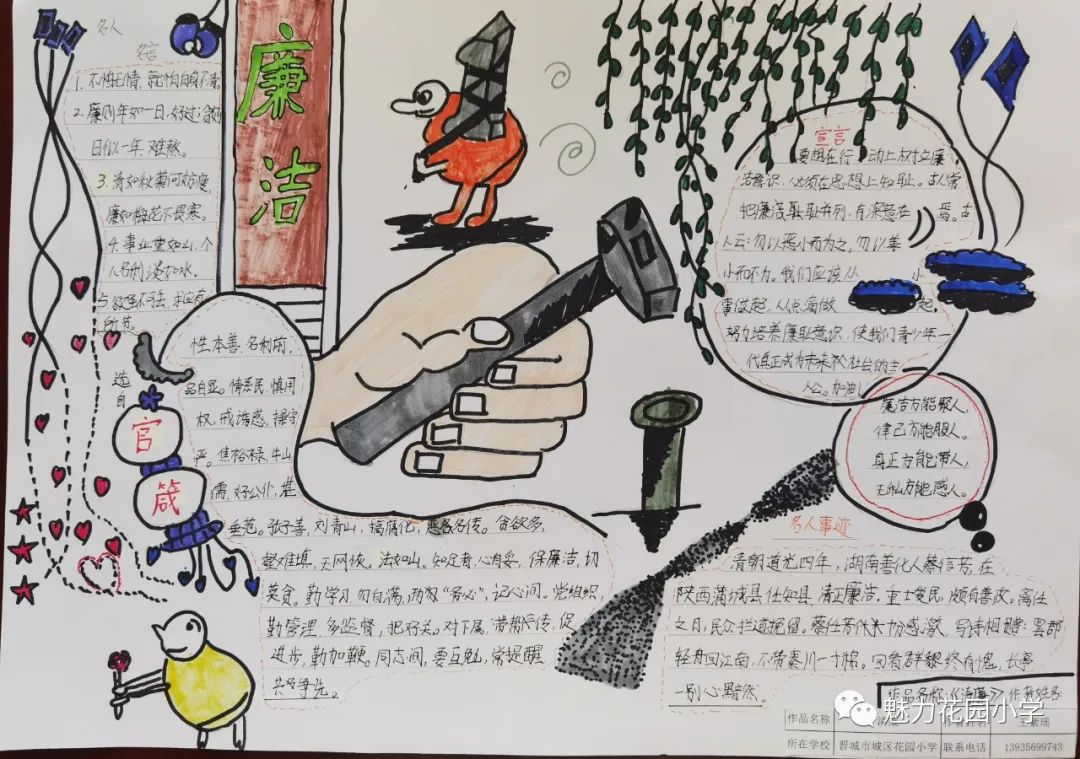 名人
名言
1. 不怕无情,就怕自身不清。
2. 廉洁年如一日,好过;贪污
日似一年,难熬。
3. 清如秋菊何妨瘦,
廉如梅花不畏寒。
4. 事业重如山,个
人名利淡如水。
廉
洁
宣言
要想在行动上树立廉
洁意识,必须在思想上知耻。古人常
把廉洁 耻并列,有深意在焉。古
人云:勿以恶小而为之,勿以善
小而不为。我们应该从小
事做起,从点滴做起,
努力培养廉耻意识,使我们青少年一
代真正成为未来 社会的主
人公。加油!
廉洁方能聚人,
律己方能服人。
真正方能带人,
无私方能感人。
造
自
官
箴
性本善,名利前,
品自显。情系民,慎用
权,戒诱惑,操守
严。焦裕禄,牛山
儒,好公仆,堪
垂范。张子善,刘青山,搞腐化,恶名传。贪欲多,
壑难填,天网恢,法如山。知足者,心自妥,保廉洁,切
莫贪。勤学习,勿自满,两个“务必”,记心间。党组织,
勤管理,多监督,把好关。对下属,带帮传,促
进步,勤加鞭。同志间,要互勉,常提醒
共争先。
名人事迹
清朝道光四年,湖南善化人蔡信芳,在
陕西蒲城县任知县,清正廉洁,重士爱民,颇有善政。离任
之日,民众拦道挽留。蔡 十分感激,写诗相赠:罢郡
轻舟回江南,不带秦川一寸棉。回看群黎终有愧,长亭
一别心黯然。
作品名称:《清廉》 作者姓名
魅力花园小学
作品名称
所在学校 晋城市城区花园小学 联系电话 13935699743